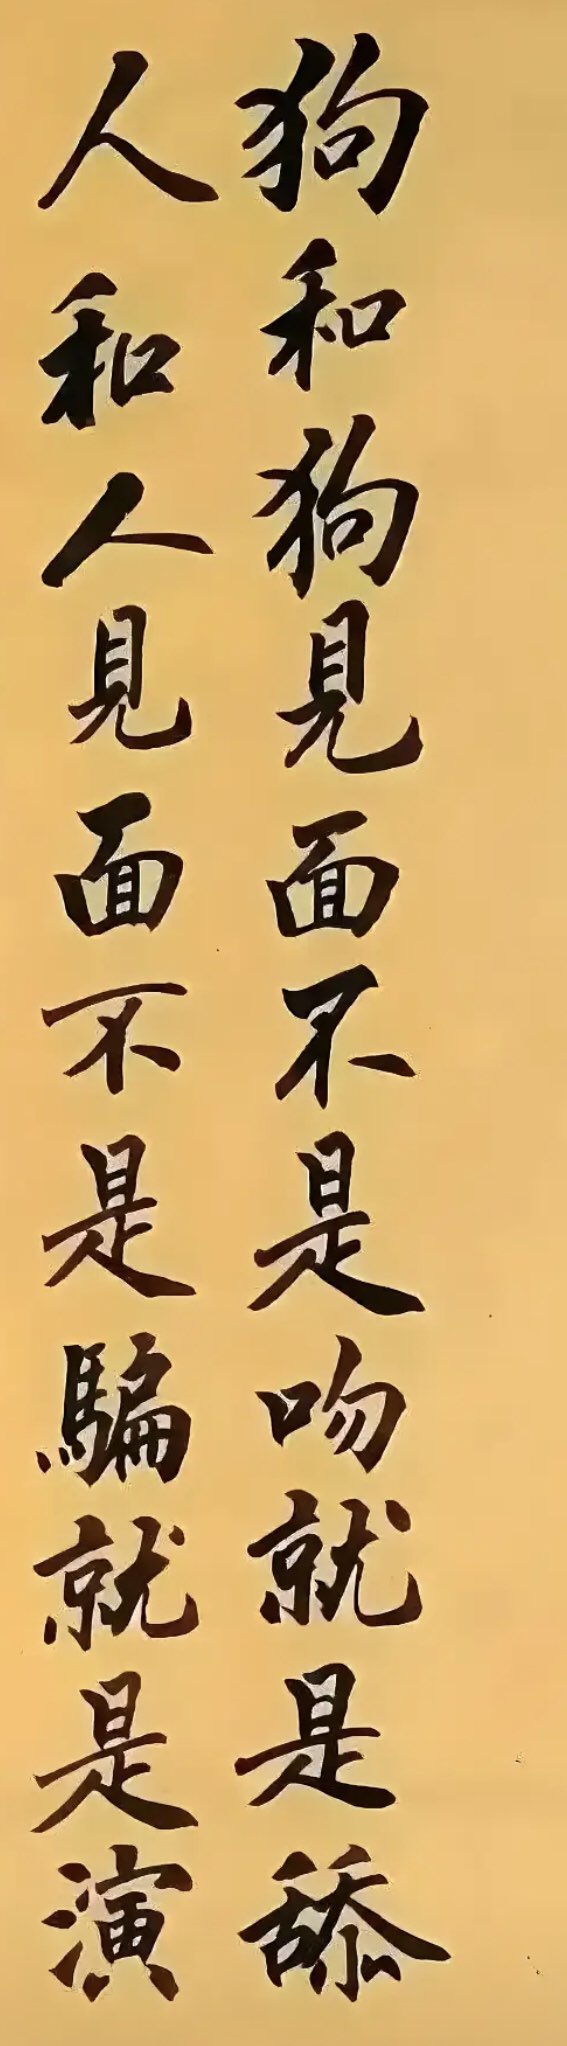 狗和狗見面不是吻就是舔
人和人見面不是騙就是演